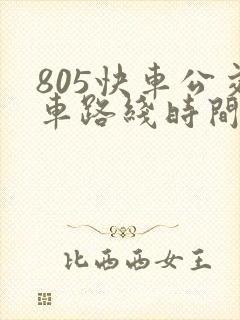 805快車公交
車路綫時間
比西西女王